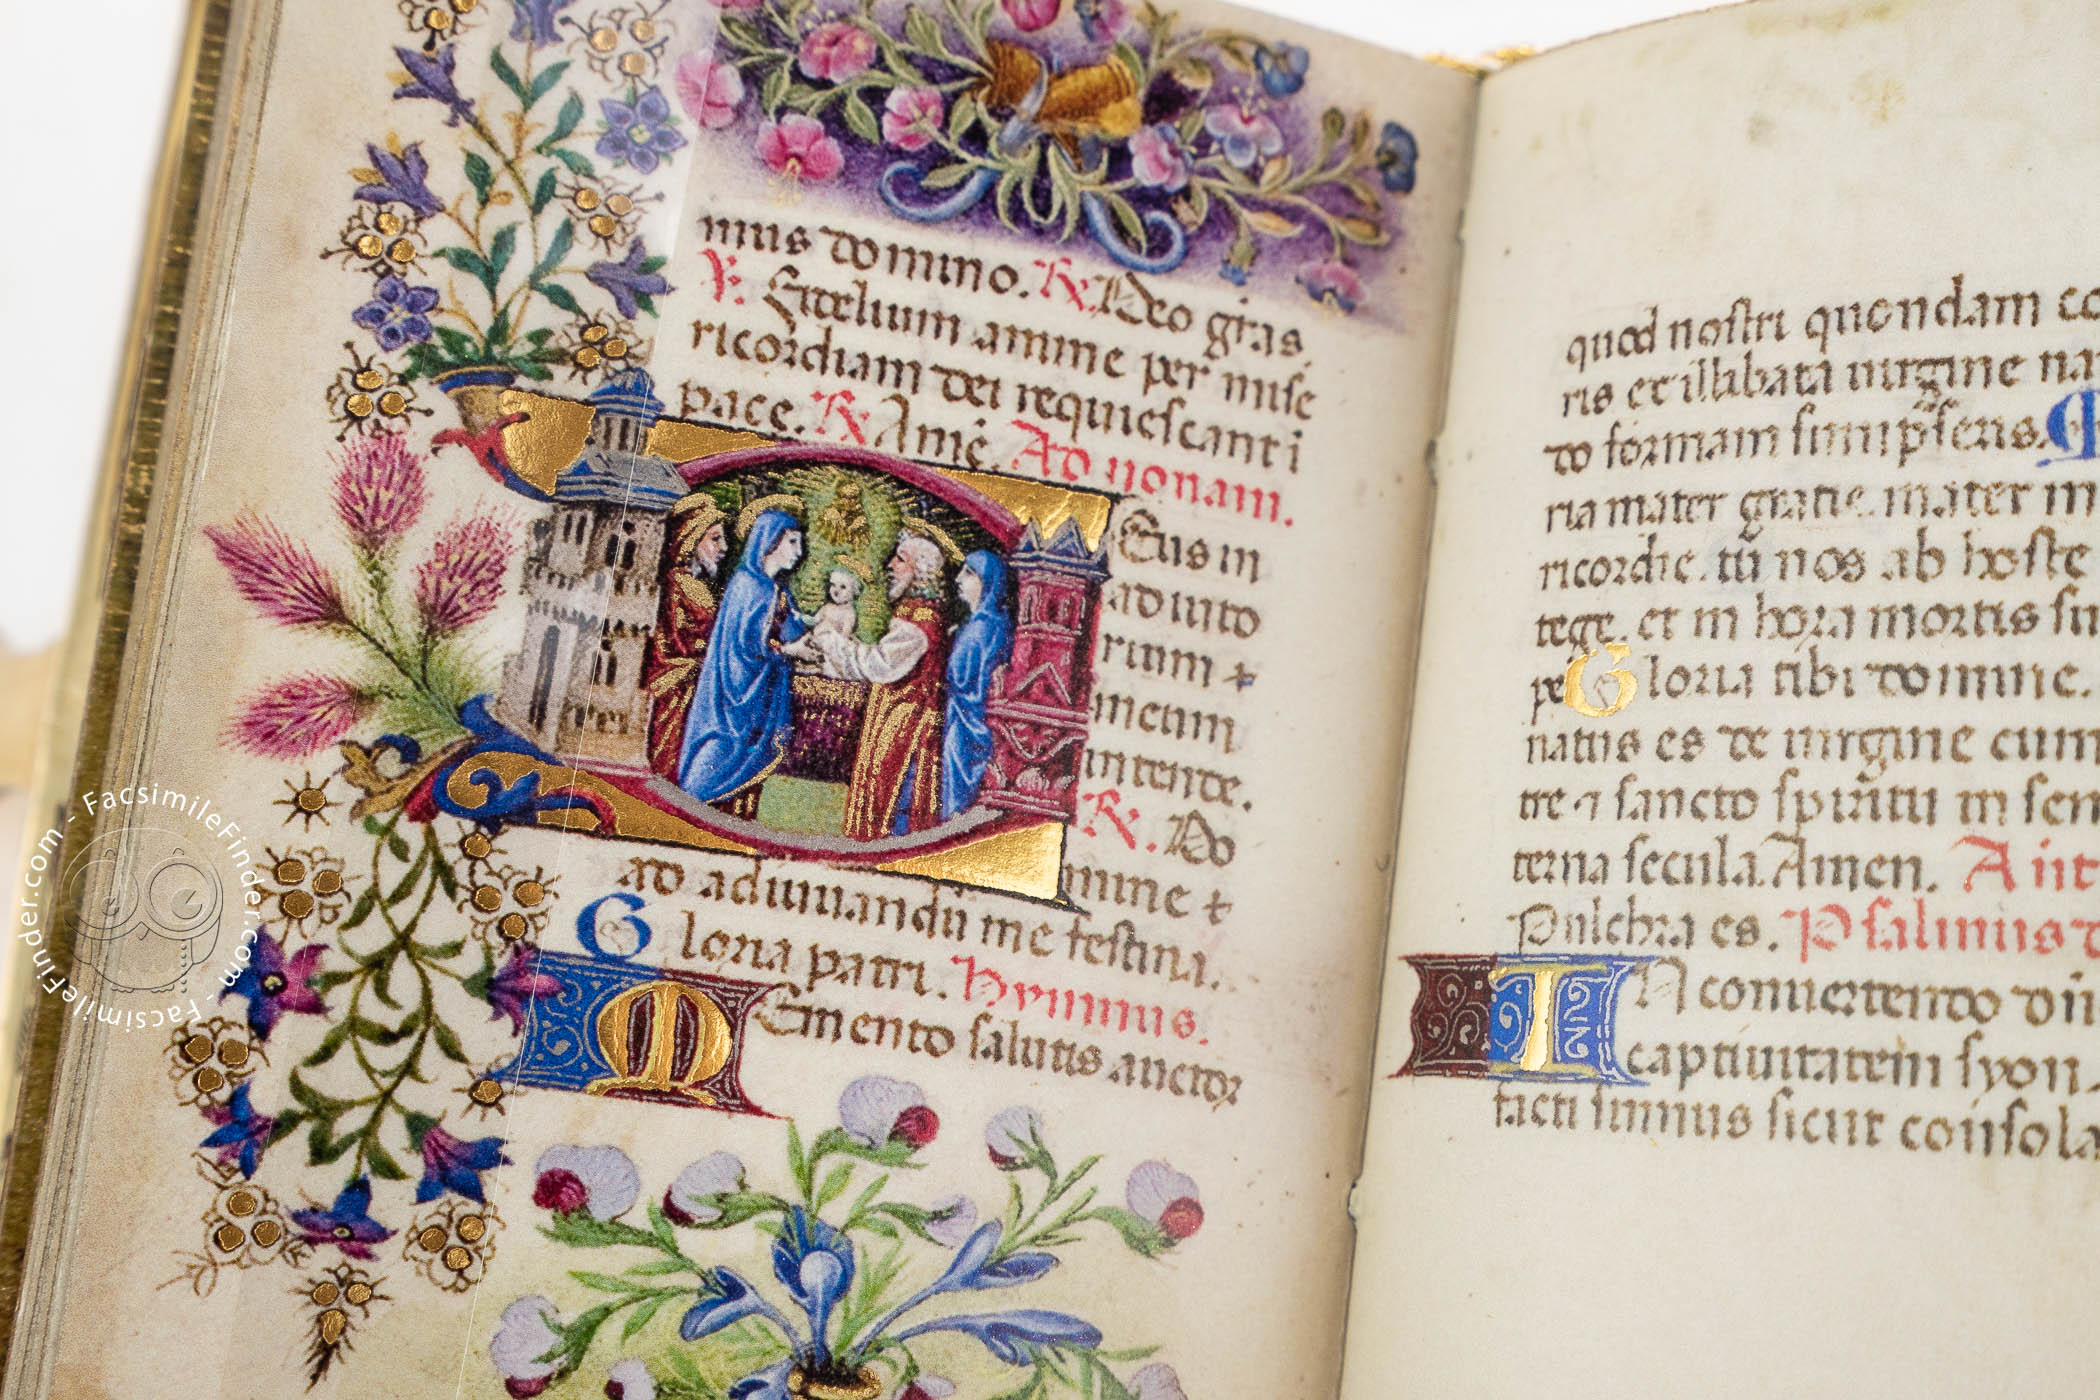 mus domino. ℟. Deo gr̃as
℣. Fidelium anime per mise
ricordiam dei requiescant i
pace. ℟ Amẽ. Ad nonam.
Eus in
adiuto
rium +
meum
intende.
℟. Do
mine +
ad adiuuandũ me festina.
Gloria patri. Hymnus.
Memento salutis auctor
quod nostri quondam co
ris et illibata uirgine na
do formam sumpseris.
ria mater gratie. mater m
ricordie. tũ nos ab hoste
tege. et in hora mortis su
pe Gloria tibi domine.
natus es de uirgine cum
tre ⁊ sancto spiritu in sem
terna secula. Amen. Ant
Pulchra es. Psalmus
IN conuertendo dñ
captiuitatem syon
facti sumus sicut consola
FacsimileFinder.com - FacsimileFinder.com -